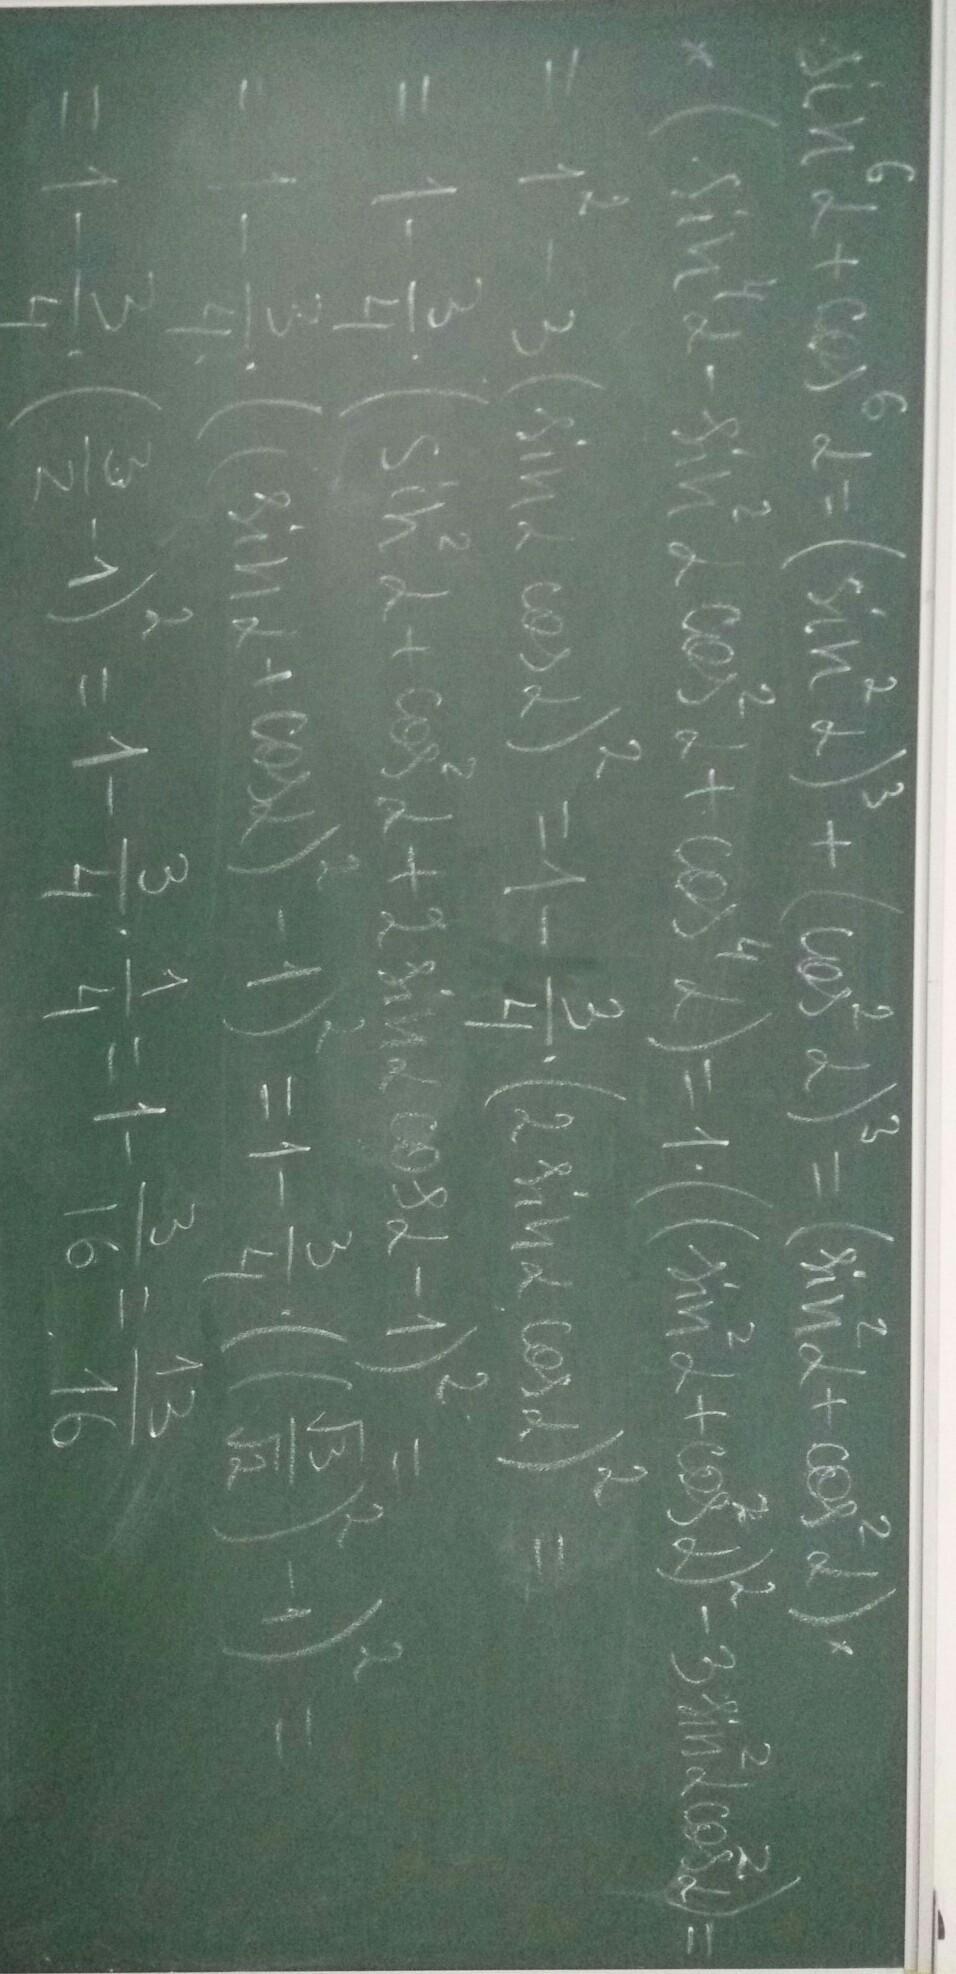 sin⁶α + cos⁶α = (sin²α)³ + (cos²α)³ = (sin²α + cos²α) ×
× (sin⁴α - sin²α cos²α + cos⁴α) = 1 · ((sin²α + cos²α)² - 3sin²α cos²α) =
= 1² - 3(sinα cosα)² = 1 - 3/4 · (2 sinα cosα)² =
= 1 - 3/4 · (sin²α + cos²α + 2 sinα cosα - 1)² =
= 1 - 3/4 · ((sinα + cosα)² - 1)² = 1 - 3/4 · ((√3/√2)² - 1)² =
= 1 - 3/4 · (3/2 - 1)² = 1 - 3/4 · 1/4 = 1 - 3/16 = 13/16